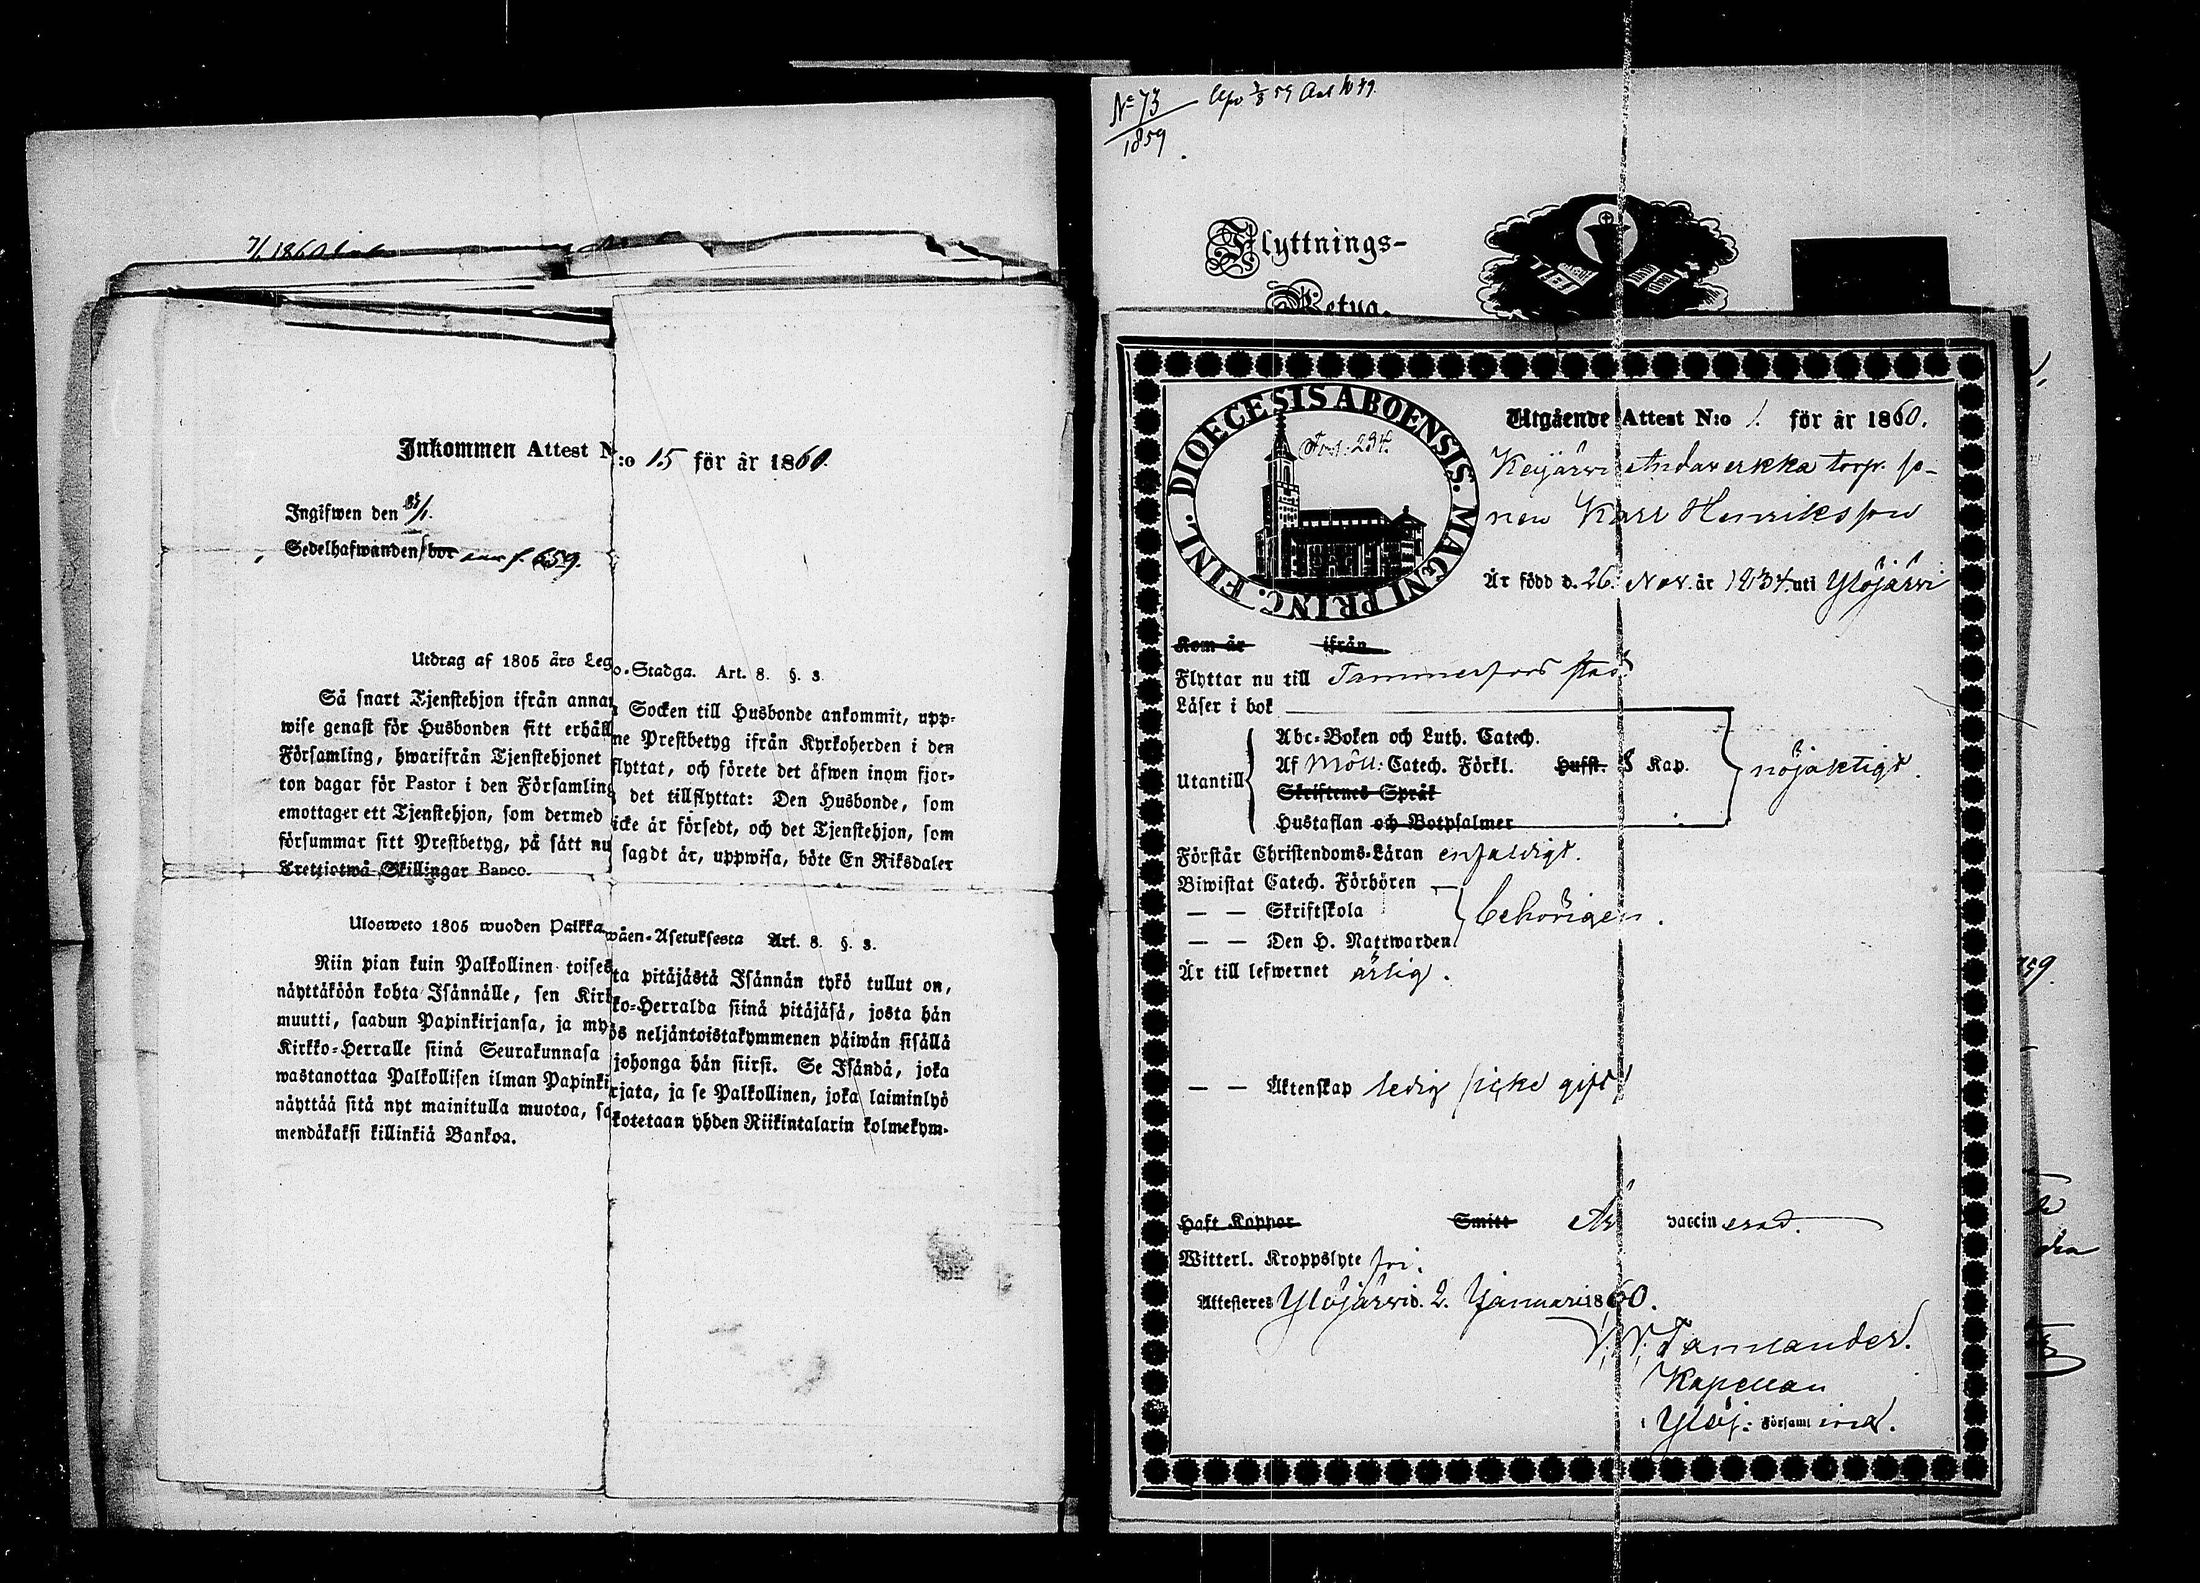 Inkommen Attest N:o 15 för år 1860.
Ingifwen den 31/1.
Sedelhafwanden bor f. 659.
Utdrag af 1805 års Lego-Stadga. Art. 8. §. 3.
Så snart Tjenstehjon ifrån annan Socken till Husbonde ankommit, upp-
wise genast för Husbonden sitt erhållne Prestbetyg ifrån Kyrkoherden i den
Församling, hwarifrån Tjenstehjonet flyttat, och förete det äfwen inom fjor-
ton dagar för Pastor i den Församling det tillflyttat: Den Husbonde, som
emottager ett Tjenstehjon, som dermed icke är försedt, och det Tjenstehjon, som
försummar sitt Prestbetyg, på sått nu sagdt är, uppwisa, böte En Riksdaler
Trettiotwå Skillingar Banco.
Ulosweto 1805 wuoden Palkkawäen-Asetuksesta Art. 8. §. 3.
Niin pian kuin Palkollinen toisesta pitäjästä Isännän tykö tullut on,
näyttäköön kohta Isännälle, sen Kirkko-Herralda siinä pitäjäsä, josta hän
muutti, saadun Papinkirjansa, ja myös neljäntoistakymmenen päiwän sisällä
Kirkko-Herralle siinä Seurakunnasa johonga hän siirsi. Se Isändä, joka
wastanottaa Palkollisen ilman Papinkirjata, ja se Palkollinen, joka laiminlyö
näyttää sitä nyt mainitulla muotoa, sakotetaan yhden Riikintalarin kolmekym-
mendäkaksi killinkiä Bankoa.
No 73
1859
Flyttnings-
Betyg.
DIOECESIS ABOENSIS. MAGNI PRINC. FINL.
Fol: 234.
Utgående Attest N:o 1. för år 1860.
Keijärwi Andawerkka torp. so-
nen Karl Henriksson
Är född d. 26. Nov. år 1834 uti Ylöjärwi
Kom år ifrån
Flyttar nu till Tammerfors stad
Läser i bok
Abc-Boken och Luth. Catech.
Utantill Af Möll: Catech. Förkl. Husst. 8 Kap. nöjaktigt.
Skriftenes Språk
Hustaflan och Botpsalmer
Förstår Christendoms-Läran enfaldigt.
Biwistat Catech. Förhören
— — Skriftskola behörigen.
— — Den H. Nattwarden
Är till lefwernet ärlig.
— — Äktenskap ledig (icke gift)
Haft Koppor Smitt Är vaccinerad.
Witterl. Kroppslyte fri.
Attesteres Ylöjärwi d. 2. Januari 1860.
Kapellan
i Ylöj: Församling.